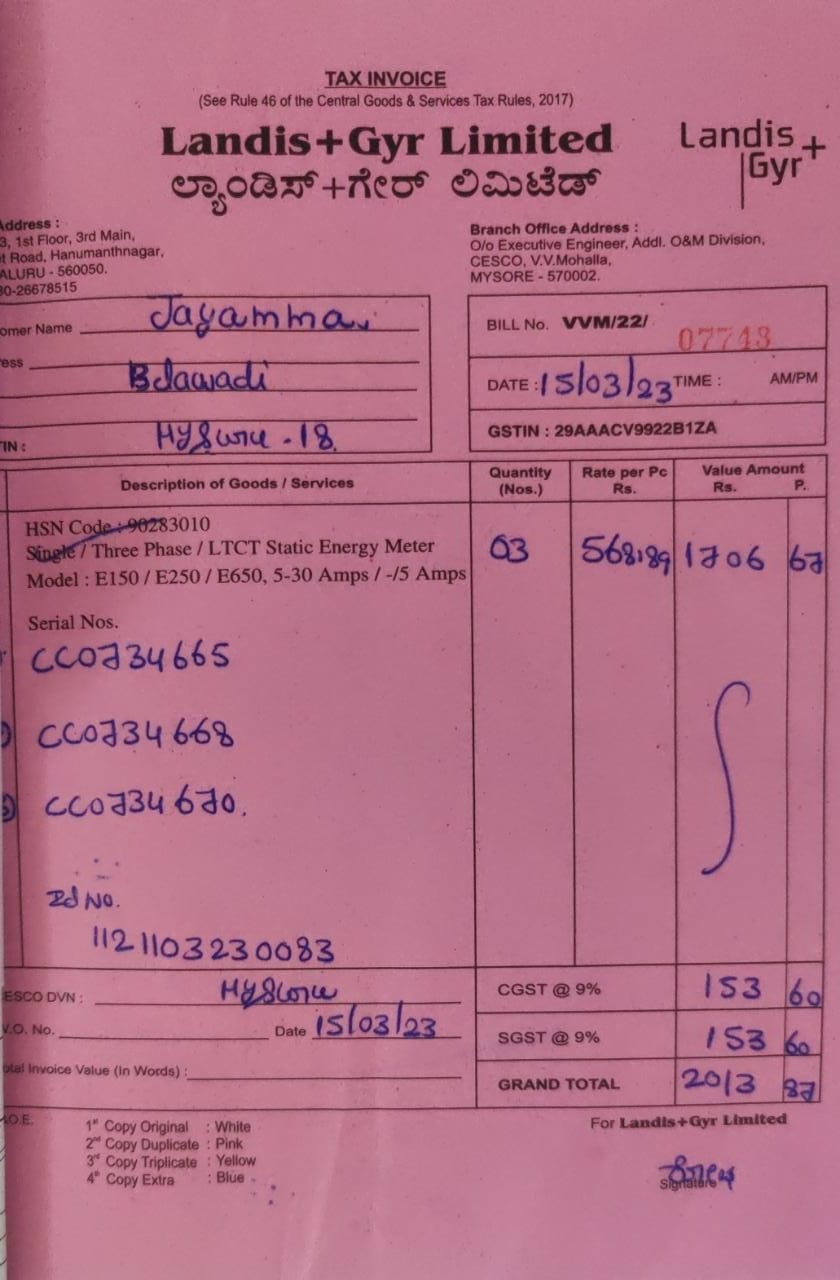 TAX INVOICE
(See Rule 46 of the Central Goods & Services Tax Rules, 2017)
Landis+Gyr Limited
ಲ್ಯಾಂಡಿಸ್+ಗೇರ್ ಲಿಮಿಟೆಡ್
Landis
Gyr+
Address :
3, 1st Floor, 3rd Main,
t Road, Hanumanthnagar,
ALURU - 560050.
30-26678515
Branch Office Address :
O/o Executive Engineer, Addl. O&M Division,
CESCO, V.V.Mohalla,
MYSORE - 570002.
omer Name Jayamma
ess
Belawadi
IN : Mysore - 18.
BILL No. VVM/22/ 07743
DATE : 15/03/23 TIME : AM/PM
GSTIN : 29AAACV9922B1ZA
Description of Goods / Services Quantity (Nos.) Rate per Pc Rs. Value Amount Rs. P.
HSN Code : 90283010
Single / Three Phase / LTCT Static Energy Meter 03 568.89 1706 67
Model : E150 / E250 / E650, 5-30 Amps / -/5 Amps
Serial Nos.
CC0734665
CC0734668
3) CC0734670.
Id No.
1121103230083
ESCO DVN : Mysore
V.O. No. Date 15/03/23
otal Invoice Value (In Words) :
CGST @ 9% 153 60
SGST @ 9% 153 60
GRAND TOTAL 2013 87
.O.E.
1st Copy Original : White
2nd Copy Duplicate : Pink
3rd Copy Triplicate : Yellow
4th Copy Extra : Blue
For Landis+Gyr Limited
Signature